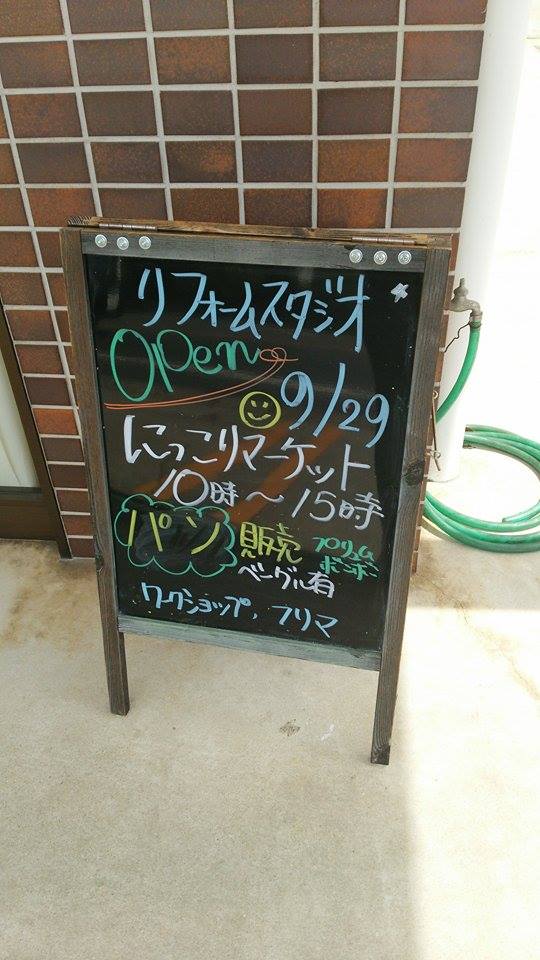 リフォームスタジオ
Open
9/29
にっこりマーケット
10時〜15時
パン 販売 プリュム
ボンボン
ベーグル有
ワークショップ, フリマ